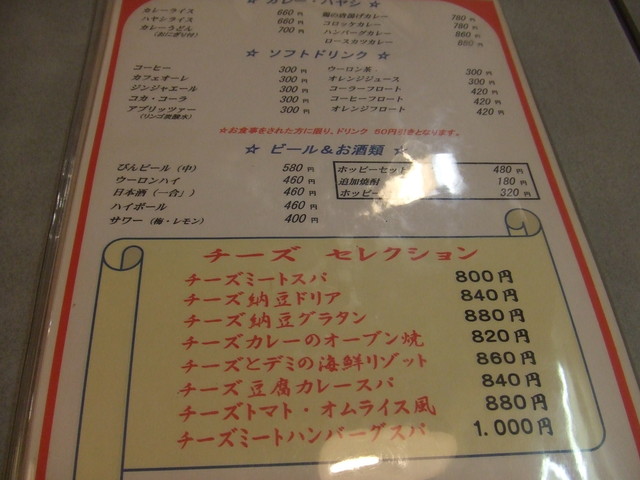 ☆ カレー・ハヤシ ☆
カレーライス 660円
ハヤシライス 660円
カレーうどん 700円
(おにぎり付)
鶏の唐揚げカレー 780円
コロッケカレー 780円
ハンバーグカレー 860円
ロースカツカレー 880円
☆ ソフトドリンク ☆
コーヒー 300円
カフェオーレ 300円
ジンジャエール 300円
コカ・コーラ 300円
アプリッツァー 300円
(リンゴ炭酸水)
ウーロン茶 300円
オレンジジュース 300円
コーラーフロート 420円
コーヒーフロート 420円
オレンジフロート 420円
☆お食事をされた方に限り、ドリンク 50円引きとなります。
☆ ビール&お酒類 ☆
びんビール(中) 580円
ウーロンハイ 460円
日本酒(一合) 460円
ハイボール 460円
サワー(梅・レモン) 400円
ホッピーセット 480円
追加焼酎 180円
ホッピー 320円
チーズ セレクション
チーズミートスパ 800円
チーズ納豆ドリア 840円
チーズ納豆グラタン 880円
チーズカレーのオーブン焼 820円
チーズとデミの海鮮リゾット 860円
チーズ豆腐カレースパ 840円
チーズトマト・オムライス風 880円
チーズミートハンバーグスパ 1.000円